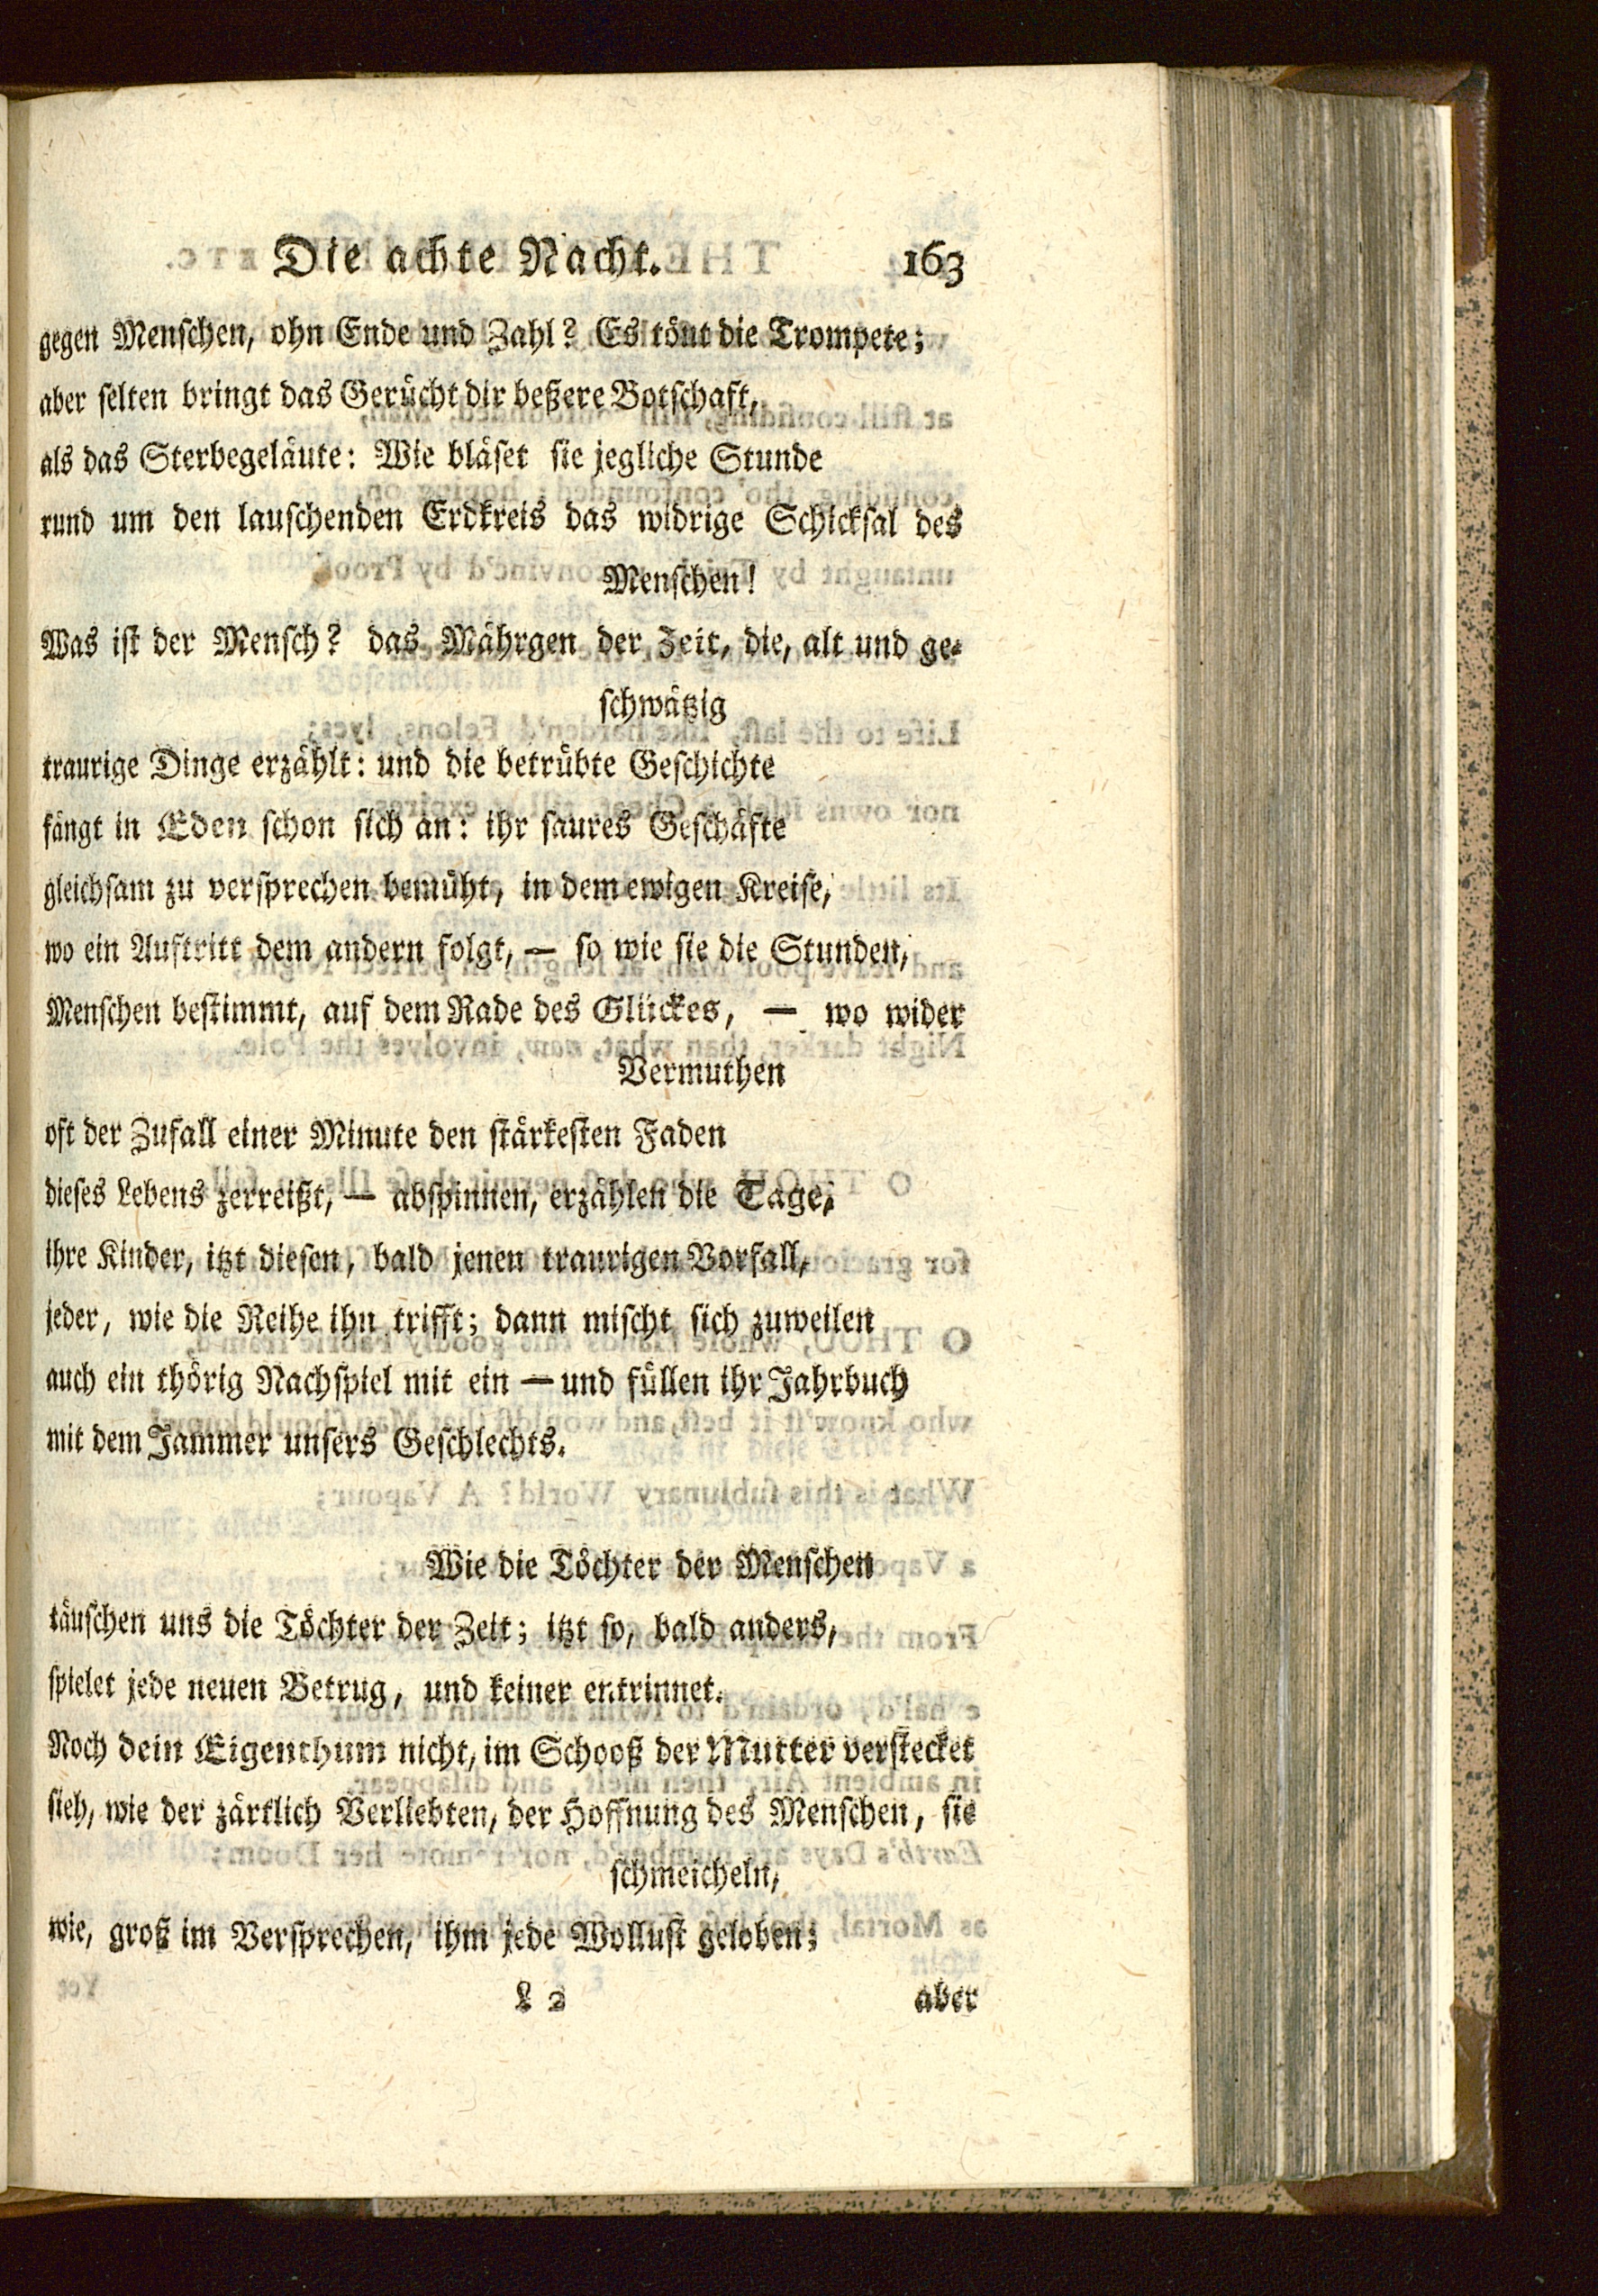 Die achte Nacht. 163
gegen Menſchen, ohn Ende und Zahl? Es tönt die Trompete;
aber ſelten bringt das Gerücht dir beßere Botſchaft,
als das Sterbegeläute: Wie bläſet ſie jegliche Stunde
rund um den lauſchenden Erdkreis das widrige Schickſal des
Menſchen!
Was iſt der Menſch? das Mährgen der Zeit, die, alt und ge-
ſchwätzig
traurige Dinge erzählt: und die betrübte Geſchichte
fängt in Eden ſchon ſich an: ihr ſaures Geſchäfte
gleichſam zu verſprechen bemüht, in dem ewigen Kreiſe,
wo ein Auftritt dem andern folgt, — ſo wie ſie die Stunden,
Menſchen beſtimmt, auf dem Rade des Glückes, — wo wider
Vermuthen
oft der Zufall einer Minute den ſtärkeſten Faden
dieſes Lebens zerreißt, — abſpinnen, erzählen die Tage,
ihre Kinder, itzt dieſen, bald jenen traurigen Vorfall,
jeder, wie die Reihe ihn trifft; dann miſcht ſich zuweilen
auch ein thörig Nachſpiel mit ein — und füllen ihr Jahrbuch
mit dem Jammer unſers Geſchlechts.
Wie die Töchter der Menſchen
täuſchen uns die Töchter der Zeit; itzt ſo, bald anders,
ſpielet jede neuen Betrug, und keiner entrinnet.
Noch dein Eigenthum nicht, im Schooß der Mutter verſtecket
ſieh, wie der zärtlich Verliebten, der Hoffnung des Menſchen, ſie
ſchmeicheln,
wie, groß im Verſprechen, ihm jede Wolluſt geloben;
L 2 aber